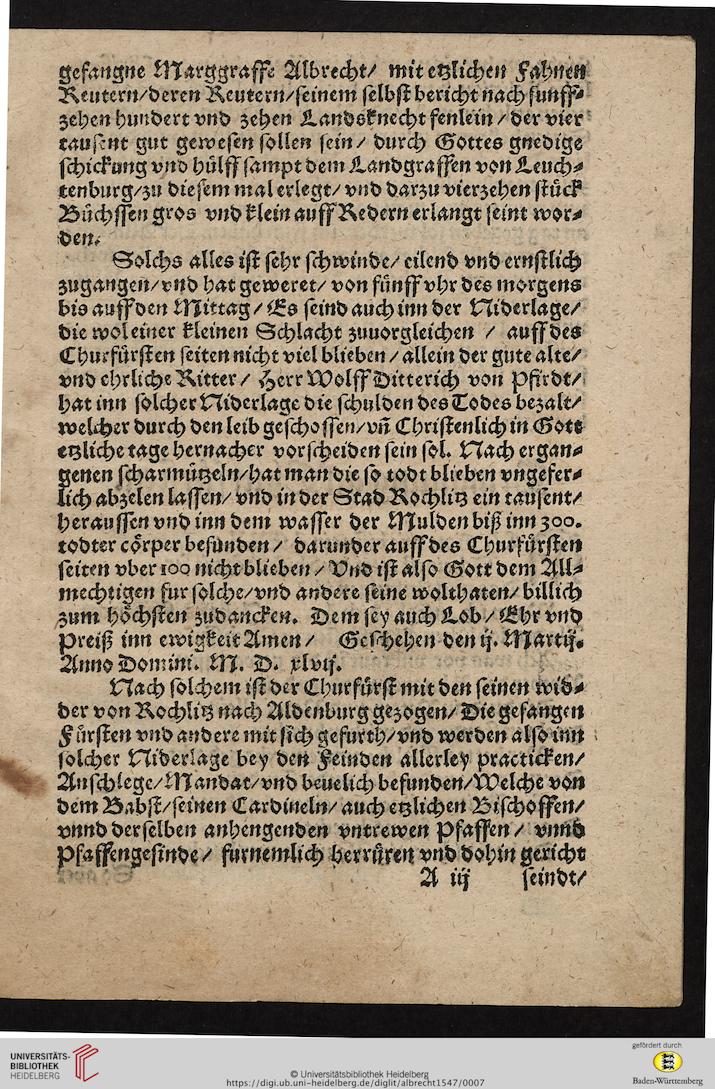 gefangne Marggraffe Albrecht/ mit etzlichen Fahnen
Reutern/deren Reutern/seinem selbst bericht nach funff⸗
zehen hundert vnd zehen Landsknecht fenlein / der vier
tausent gut gewesen sollen sein / durch Gottes gnedige
schickung vnd hülff sampt dem Landgraffen von Leuch⸗
tenburg/zu diesem mal erlegt/ vnd darzu vierzehen stück
Büchssen gros vnd klein auff Redern erlangt seint wor⸗
den.
Solchs alles ist sehr schwinde/ eilend vnd ernstlich
zugangen/vnd hat geweret/ von fünff vhr des morgens
bis auff den Mittag / Es seind auch inn der Niderlage/
die wol einer kleinen Schlacht zuuorgleichen / auff des
Churfürsten seiten nicht viel blieben / allein der gute alte/
vnd ehrliche Ritter / Herr Wolff Ditterich von Pfirdt/
hat inn solcher Niderlage die schulden des Todes bezalt/
welcher durch den leib geschossen/vñ Christenlich in Gott
etzliche tage hernacher vorscheiden sein sol. Nach ergan⸗
genen scharmützeln/hat man die so todt blieben vngefer⸗
lich abzelen lassen/ vnd in der Stad Rochlitz ein tausent/
heraussen vnd inn dem wasser der Mulden biß inn 300.
todter cörper befunden / darunder auff des Churfürsten
seiten vber 100 nicht blieben / Vnd ist also Gott dem All⸗
mechtigen fur solche/vnd andere seine wolthaten/ billich
zum höchsten zudancken. Dem sey auch Lob / Ehr vnd
Preiß inn ewigkeit Amen / Geschehen den ij. Martij.
Anno Domini. M. D. xlvij.
Nach solchem ist der Churfürst mit den seinen wid⸗
der von Rochlitz nach Aldenburg gezogen/ Die gefangen
Fürsten vnd andere mit sich gefurth/vnd werden also inn
solcher Niderlage bey den Feinden allerley practicken/
Anschlege/Mandat/vnd beuelich befunden/Welche von
dem Babst/seinen Cardineln/ auch etzlichen Bischoffen/
vnnd derselben anhengenden vntrewen Pfaffen / vnnd
Pfaffengesinde / furnemlich herrüren vnd dohin gericht
A iij seindt/
gefördert durch
UNIVERSITÄTS-
BIBLIOTHEK
HEIDELBERG
© Universitätsbibliothek Heidelberg
https://digi.ub.uni-heidelberg.de/diglit/albrecht1547/0007
Baden-Württemberg